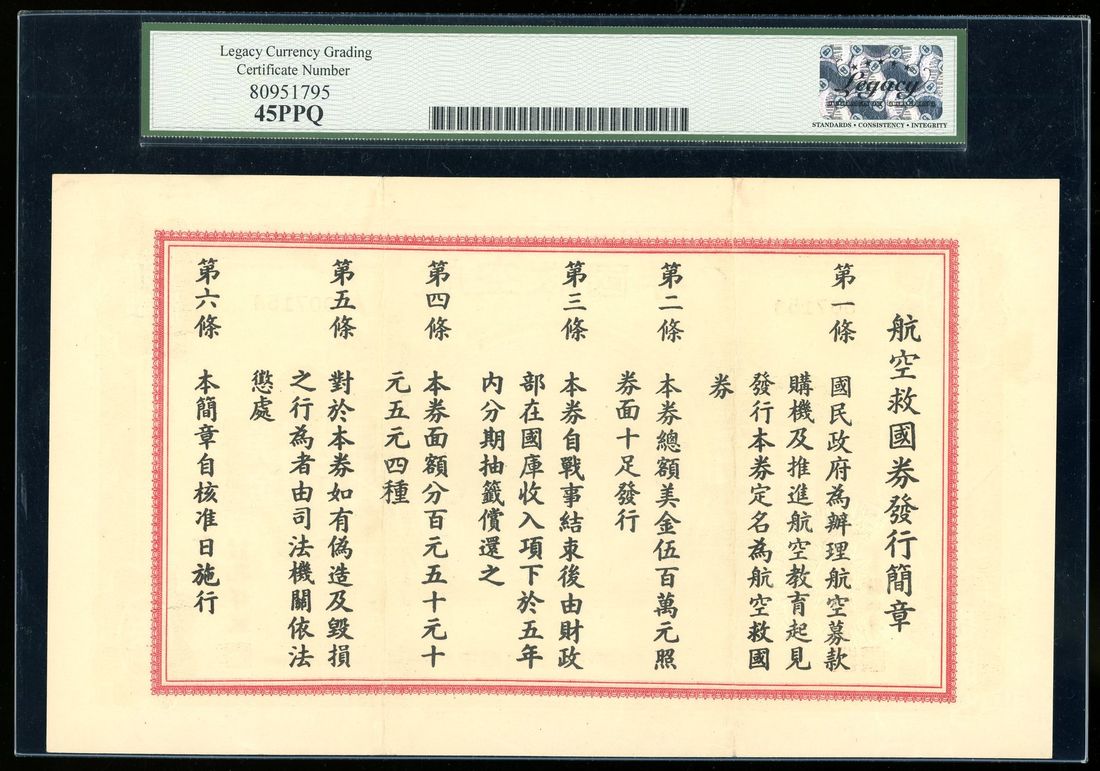 Legacy Currency Grading
Certificate Number
80951795
45PPQ
Legacy
STANDARDS • CONSISTENCY • INTEGRITY
航空救國券發行簡章
第一條 國民政府為辦理航空募款
購機及推進航空教育起見
發行本券定名為航空救國
券
第二條 本券總額美金伍百萬元照
券面十足發行
第三條 本券自戰事結束後由財政
部在國庫收入項下於五年
內分期抽籤償還之
第四條 本券面額分百元五十元十
元五元四種
第五條 對於本券如有偽造及毀損
之行為者由司法機關依法
懲處
第六條 本簡章自核准日施行